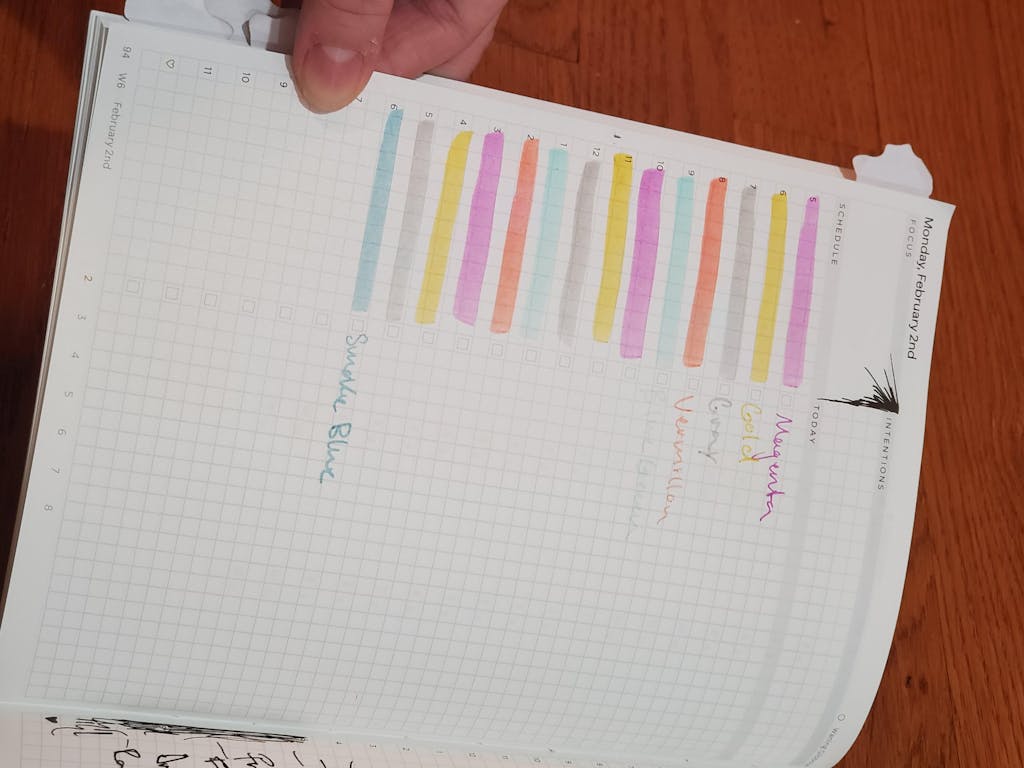 Monday, February 2nd
FOCUS
INTENTIONS
SCHEDULE
TODAY
5
Magenta
6
Gold
7
Gray
8
Vermillon
9
10
11
12
1
2
3
4
5
6
Smoke Blue
7
9
10
11
94 W6 February 2nd
2 3 4 5 6 7 8